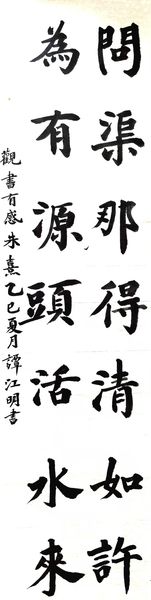 問渠那得清如許
為有源頭活水來
觀書有感朱熹乙巳夏月譚江明書